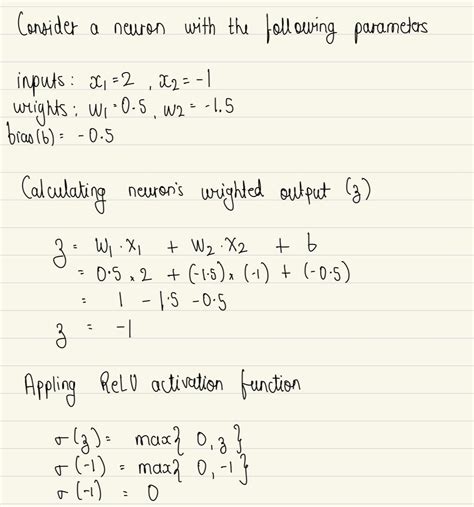 Consider a neuron with the following parameters
inputs: x₁=2 , x₂=-1
wrights: w₁=0.5, w₂ = -1.5
bias(b) = -0.5
Calculating neuron's wrighted output (z)
z = w₁·x₁ + w₂·x₂ + b
= 0.5 × 2 + (-1.5) × (-1) + (-0.5)
= 1 - 1.5 - 0.5
z = -1
Appling ReLU activation function
σ(z) = max{ 0, z }
σ(-1) = max{ 0, -1 }
σ(-1) = 0